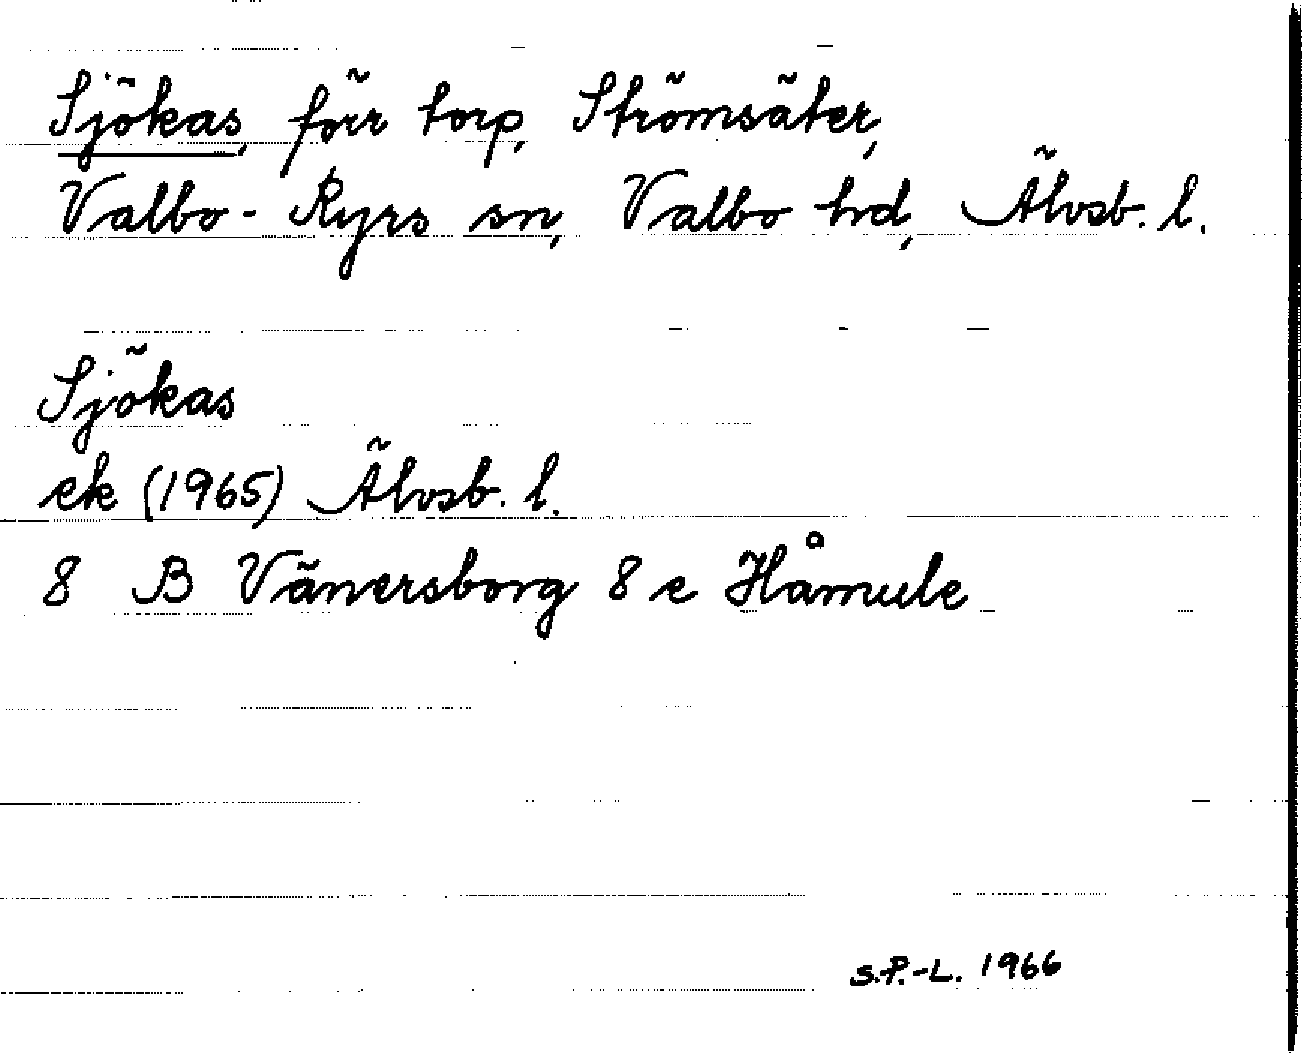 Sjökas, förr torp, Strömsäter,
Valbo-Ryrs sn, Valbo hd, Älvsb. l.
Sjökas
ek (1965) Älvsb. l.
8 B Vänersborg 8 e Håmule
S.P.-L. 1966